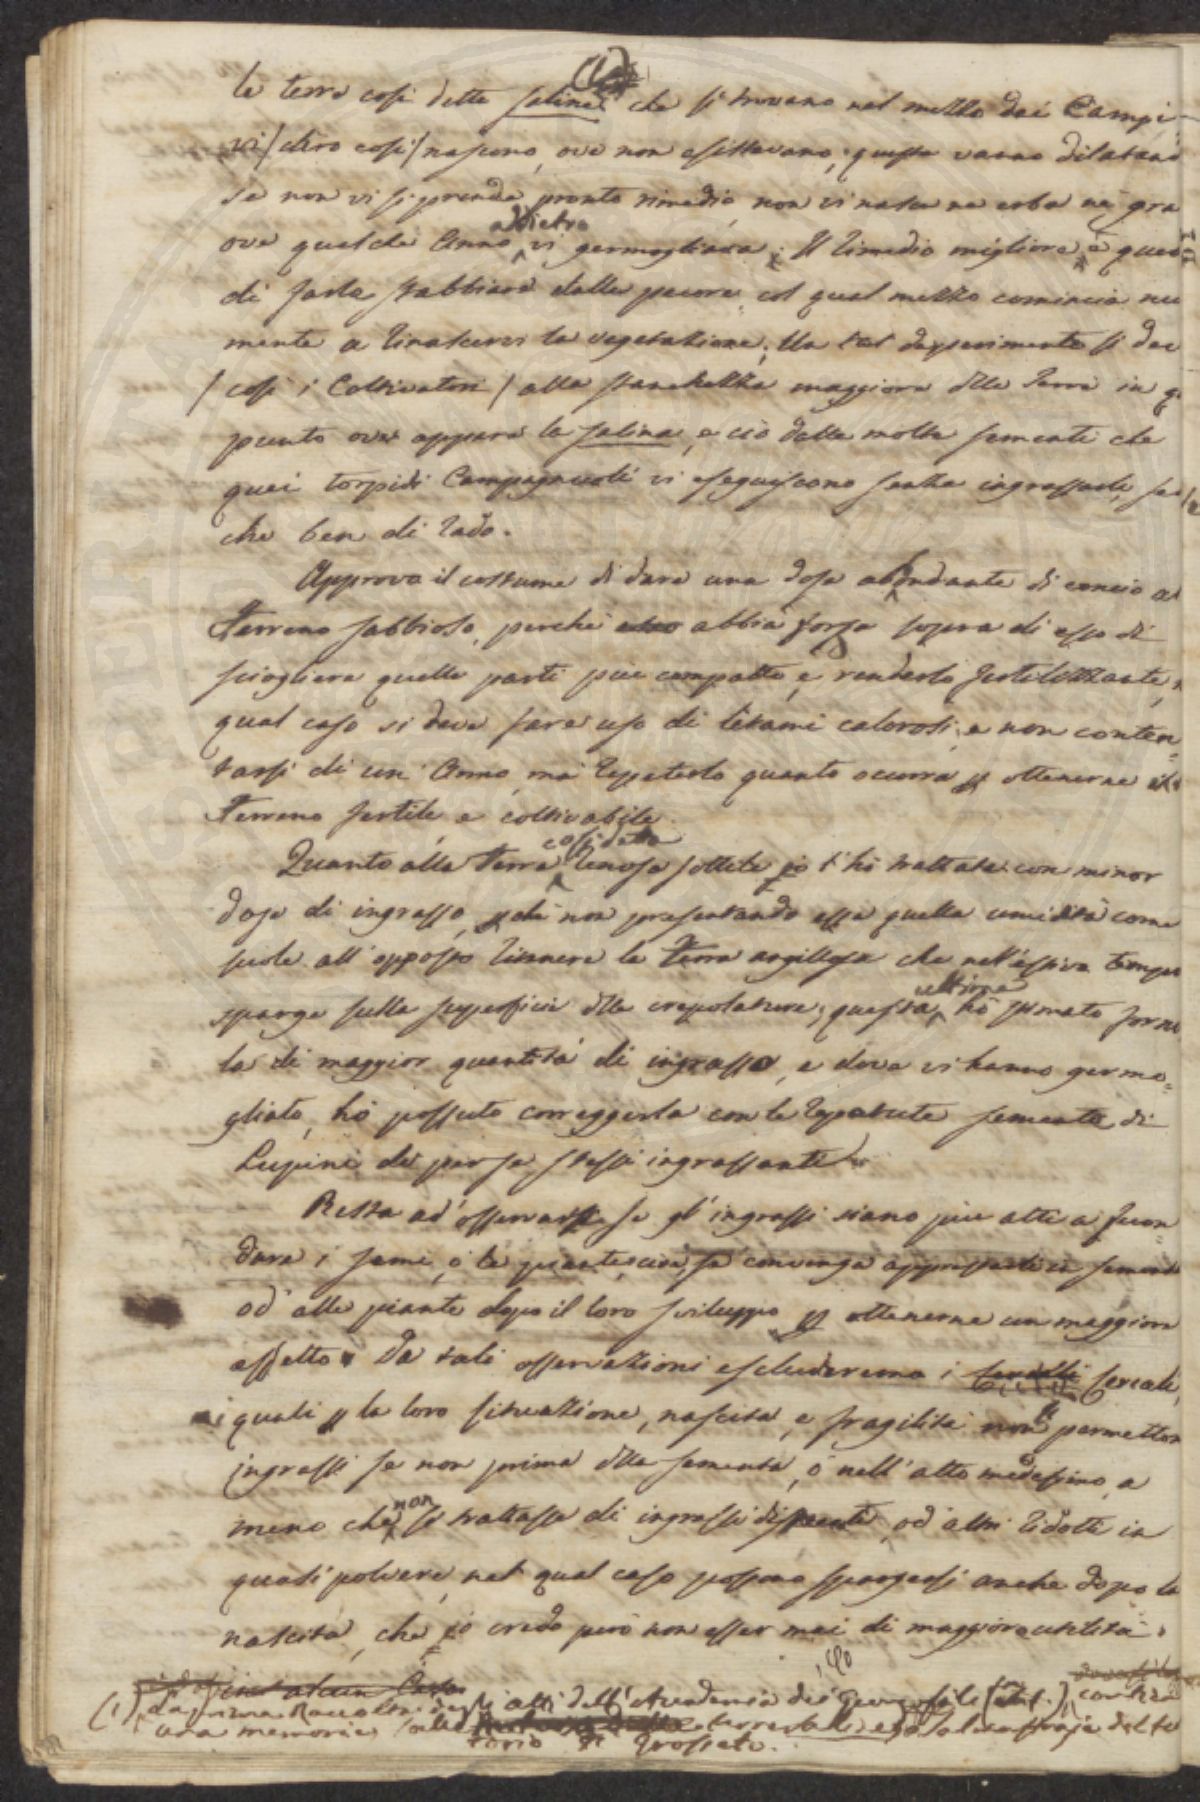 (1)
le terre così dette saline che si trovano nel mezzo dei Campi
vi / dirò così / nascono, ove non esistevano; queste vanno dilatand
se non vi si prende pronto rimedio, non vi nasce ne erba ne gra
ove qualche Anno addietro vi germogliava; Il rimedio migliore è quel
di farle stabbiare dalle pecore col qual mezzo comincia nu
mente a rinascervi la vegetazione; Un tal deperimento si dee
/ così i Coltivatori / alla stanchezza maggiore dlla Terra in q
punto ove appare la salina, e ciò dalle molte sementi che
quei torpidi Campagnuoli vi eseguiscono senza ingrassarli, se
che ben di rado.
Approvo il costume di dare una dose abondante di concio al
Terreno sabbioso, perchè abbia forza sopra di esso di
sciogliere quelle parti piu compatte, e renderlo fertilizzante,
qual caso si deve fare uso di letami calorosi, e non conten=
tarsi di un' Anno, mà repeterlo quanto ocurra p ottenerne il
Terreno fertile e coltivabile.
Quanto alla Terra così detta renosa sottile io l'hò trattata con minor
dose di ingrasso, p chè non presentando essa quella umidità come
suole all'opposto ritenere la Terra argillosa che nell'estivo tempo
sparge sulla superficie dlle crepolature; quest'ultima hò stimato forni
la di maggior quantità di ingrasso, e dove vi hanno germo=
gliato, hò possuto correggerla con le repetute sementi di
Lupini da per se stessi ingrassanti.
Resta ad'osservarsi se gl'ingrassi siano piu atti a fecon=
dare i semi, o le piante, cioè, se convenga apprestarli ai sementi
od'alle piante dopo il loro sviluppo p ottenerne un maggiore
effetto. Da tali osservazioni escluderemo i Cereali,
i quali p la loro situazione, nascita, e fragilità non permetton
ingrassi se non prima dlla sementa, ò nell'atto medesimo, a
meno che non si trattasse di ingrassi od altri ridotti in
quasi polvere, nel qual caso possono spargersi anche dopo la
nascita, che io credo però non esser mai di maggiore utilità.
(1) La prima Raccolta degli atti dell'Accademia dei Georgofili contiene
una memoria sulle terre salse e salmastraje del te
torio di Grosseto.